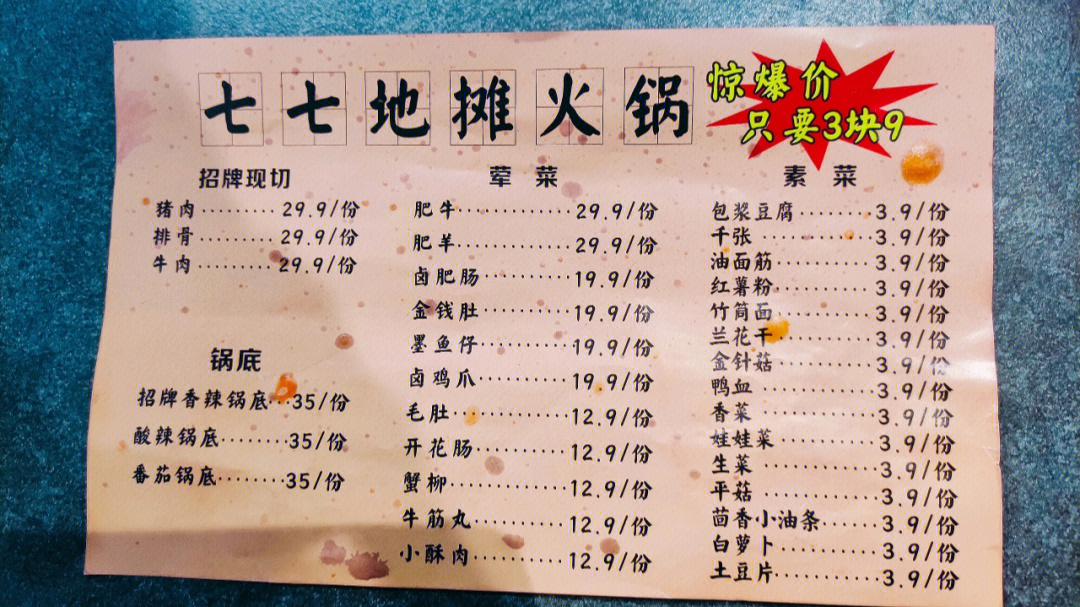 七七地摊火锅
惊爆价
只要3块9
招牌现切
猪肉·········29.9/份
排骨·········29.9/份
牛肉·········29.9/份
锅底
招牌香辣锅底···35/份
酸辣锅底········35/份
番茄锅底········35/份
荤菜
肥牛·············29.9/份
肥羊·············29.9/份
卤肥肠··········19.9/份
金钱肚··········19.9/份
墨鱼仔··········19.9/份
卤鸡爪··········19.9/份
毛肚·············12.9/份
开花肠··········12.9/份
蟹柳·············12.9/份
牛筋丸··········12.9/份
小酥肉··········12.9/份
素菜
包浆豆腐········3.9/份
千张·············3.9/份
油面筋··········3.9/份
红薯粉··········3.9/份
竹筒面··········3.9/份
兰花干··········3.9/份
金针菇··········3.9/份
鸭血·············3.9/份
香菜·············3.9/份
娃娃菜··········3.9/份
生菜·············3.9/份
平菇·············3.9/份
茴香小油条······3.9/份
白萝卜··········3.9/份
土豆片··········3.9/份